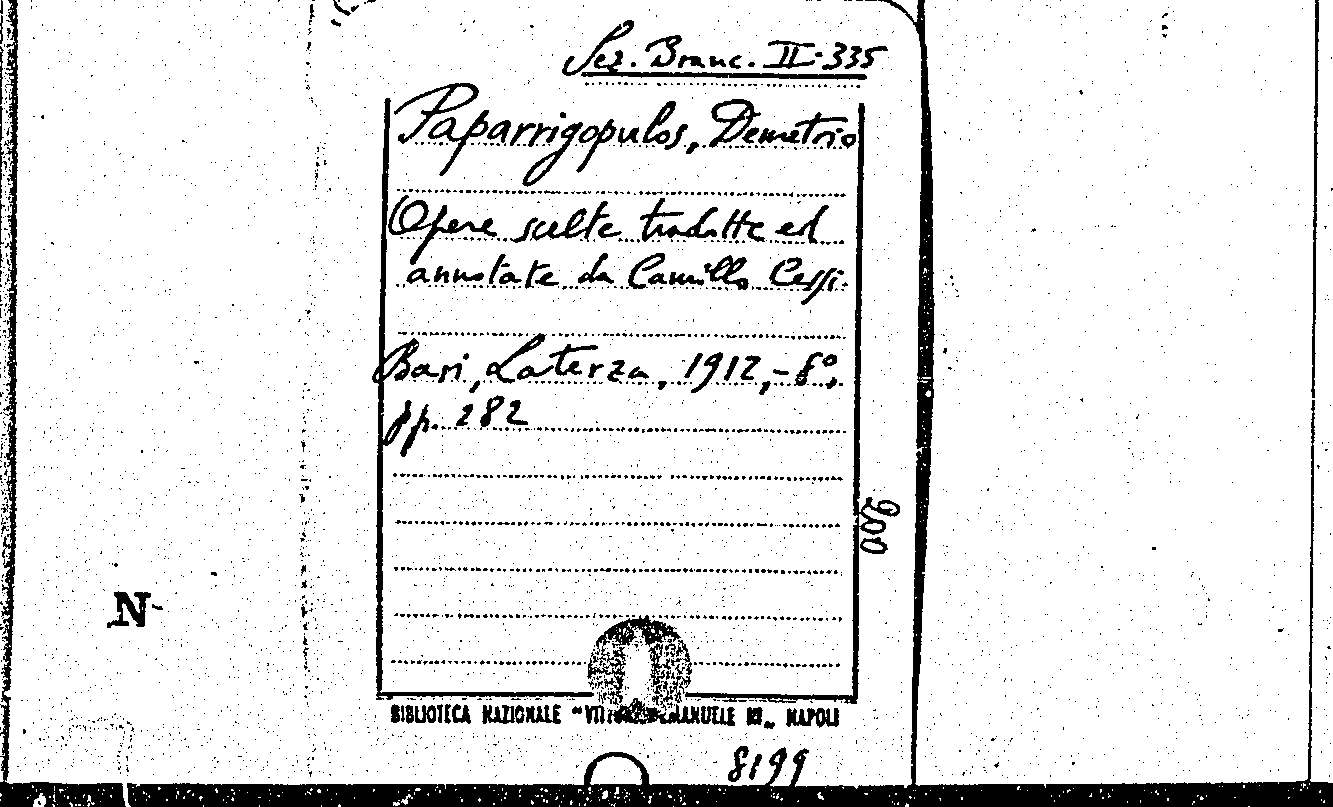 Sez. Branc. II-335
Paparrigopulos, Demetrio
Opere scelte tradotte ed
annotate da Camillo Cessi.
Bari, Laterza, 1912,-8º,
pp. 282
200
N
BIBLIOTECA NAZIONALE "VITTORIO EMANUELE III„ NAPOLI
8199